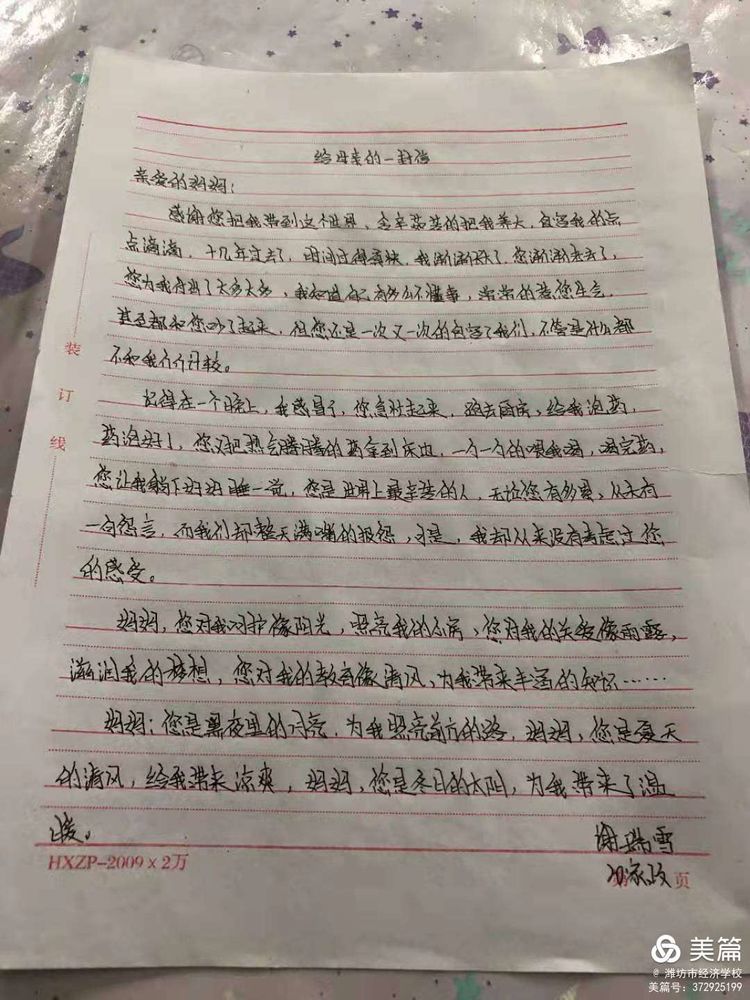 给母亲的一封信
亲爱的妈妈:
感谢您把我带到这个世界、含辛茹苦的把我养大,包容我的点
点滴滴,十几年过去了,时间过得真快,我渐渐长大了,您渐渐老去了,
您为我付出了太多太多,我知道自己有多么不懂事,常常的惹您生气,
甚至都和您吵了起来,但您还是一次又一次的包容了我们,不管是什么都
不和我们计较。
记得在一个晚上,我感冒了,您急忙起来,跑去厨房,给我泡药,
药泡好了,您又把热气腾腾的药拿到床边,一勺一勺的喂我喝,喝完药,
您让我躺下好好睡一觉,您是世界上最辛苦的人,无论您有多累,从未有
一句怨言,而我们却整天满嘴的报怨,可是,我却从来没有考虑过您
的感受。
妈妈,您对我呵护像阳光,照亮我的心房,您对我的关爱像雨露,
滋润我的梦想,您对我的教育像清风、为我带来丰富的知识……
妈妈:您是黑夜里的月亮,为我照亮前方的路,妈妈,您是夏天
的清风,给我带来凉爽,妈妈,您是冬日的太阳,为我带来了温
暖。
谢瑞雪
家政
装
订
线
HXZP-2009×2万
页
美篇
@潍坊市经济学校
美篇号:372925199